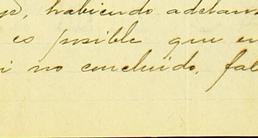 habiendo adelan
es posible que en
i no concluido, fal